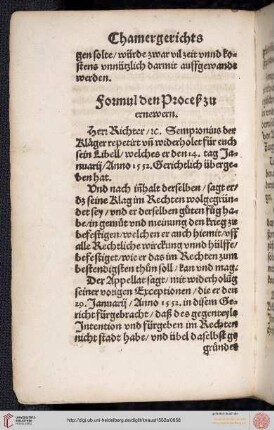 Chamergerichts
gen solte/ würde zwar vil zeit vnnd ko-
stens vnnützlich darmit auffgewandt
werden.
Formul den Proceß zu
ernewern.
Herr Richter/ ꝛc. Sempronius der
Kläger repetirt vñ widerholet für euch
sein Libell/ welches er den 14. tag Ja-
nuarij/ Anno 1552. Gerichtlich überge-
ben hat.
Vnd nach inhalt derselben/ sagt er/
dz seine Klag im Rechten wolgegrün-
det sey/ vnd er derselben gůten fůg ha-
be/ in gemüt vnd meinung den krieg zu
befestigen/ welchen er auch hiemit/ vff
alle Rechtliche wirckung vnnd hülffe/
befestiget/ wie er das im Rechten zum
bestendigsten thůn soll/ kan vnd mag.
Der Appellat sagt/ mit widerholũg
seiner vorigen Exceptionen/ die er den
29. Januarij/ Anno 1552. in disem Ge-
richt fürgebracht/ daß des gegenteyls
Intention vnd fürgeben im Rechten
nicht stadt habe/ vnd übel daselbst ge
gründet
http://digi.ub.uni-heidelberg.de/diglit/knaust1562a/0038